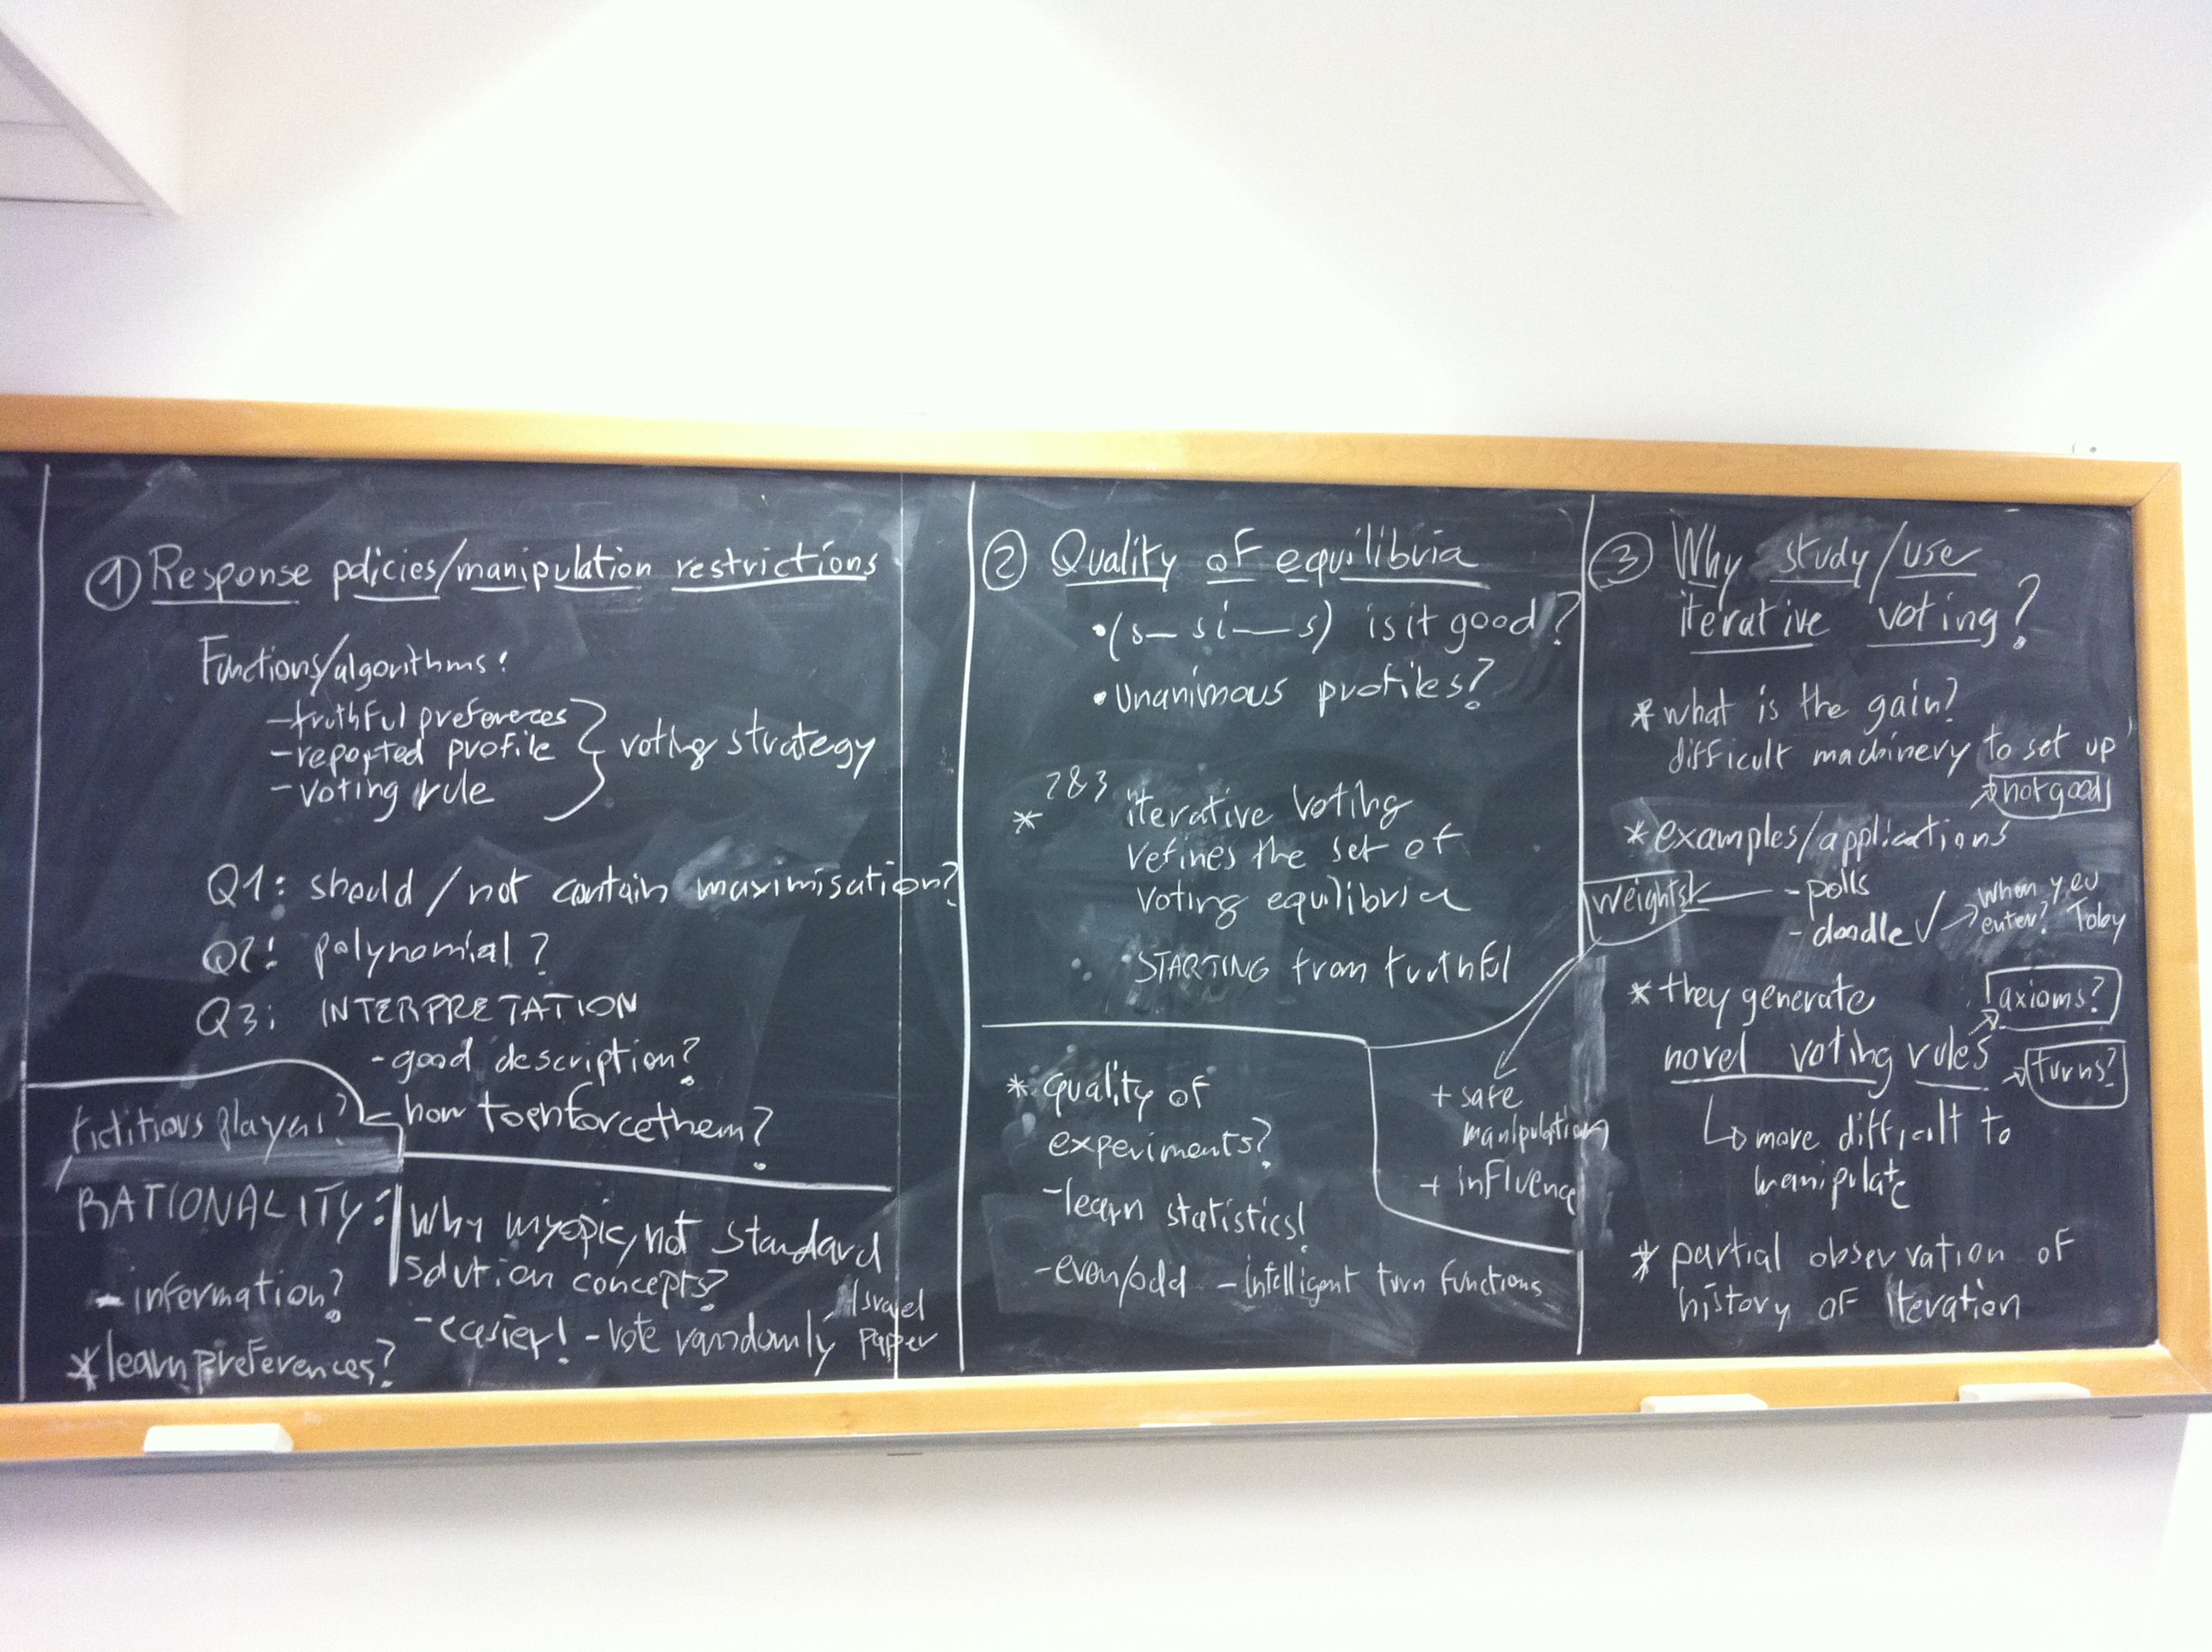 ① Response policies/manipulation restrictions
Functions/algorithms:
- truthful preferences
- reported profile
- voting rule
voting strategy
Q1: should / not contain maximisation?
Q2: polynomial?
Q3: INTERPRETATION
- good description?
- how to enforce them?
fictitious player?
RATIONALITY:
- information?
* learn preferences?
Why myopic, not standard
solution concepts?
- easier! - vote randomly
Israel
paper
② Quality of equilibria
• (s— si — s) is it good?
• Unanimous profiles?
* 2&3 iterative voting
refines the set of
voting equilibria
STARTING from truthful
* quality of
experiments?
- learn statistics!
- even/odd - intelligent turn functions
+ safe
manipulation
+ influence
③ Why study/use
iterative voting?
* what is the gain?
difficult machinery to set up
not good
* examples/applications
weights!
- polls
- doodle ✓ → when you
enter? Toby
* they generate
novel voting rules
axioms?
turns?
↳ more difficult to
manipulate
* partial observation of
history of iteration